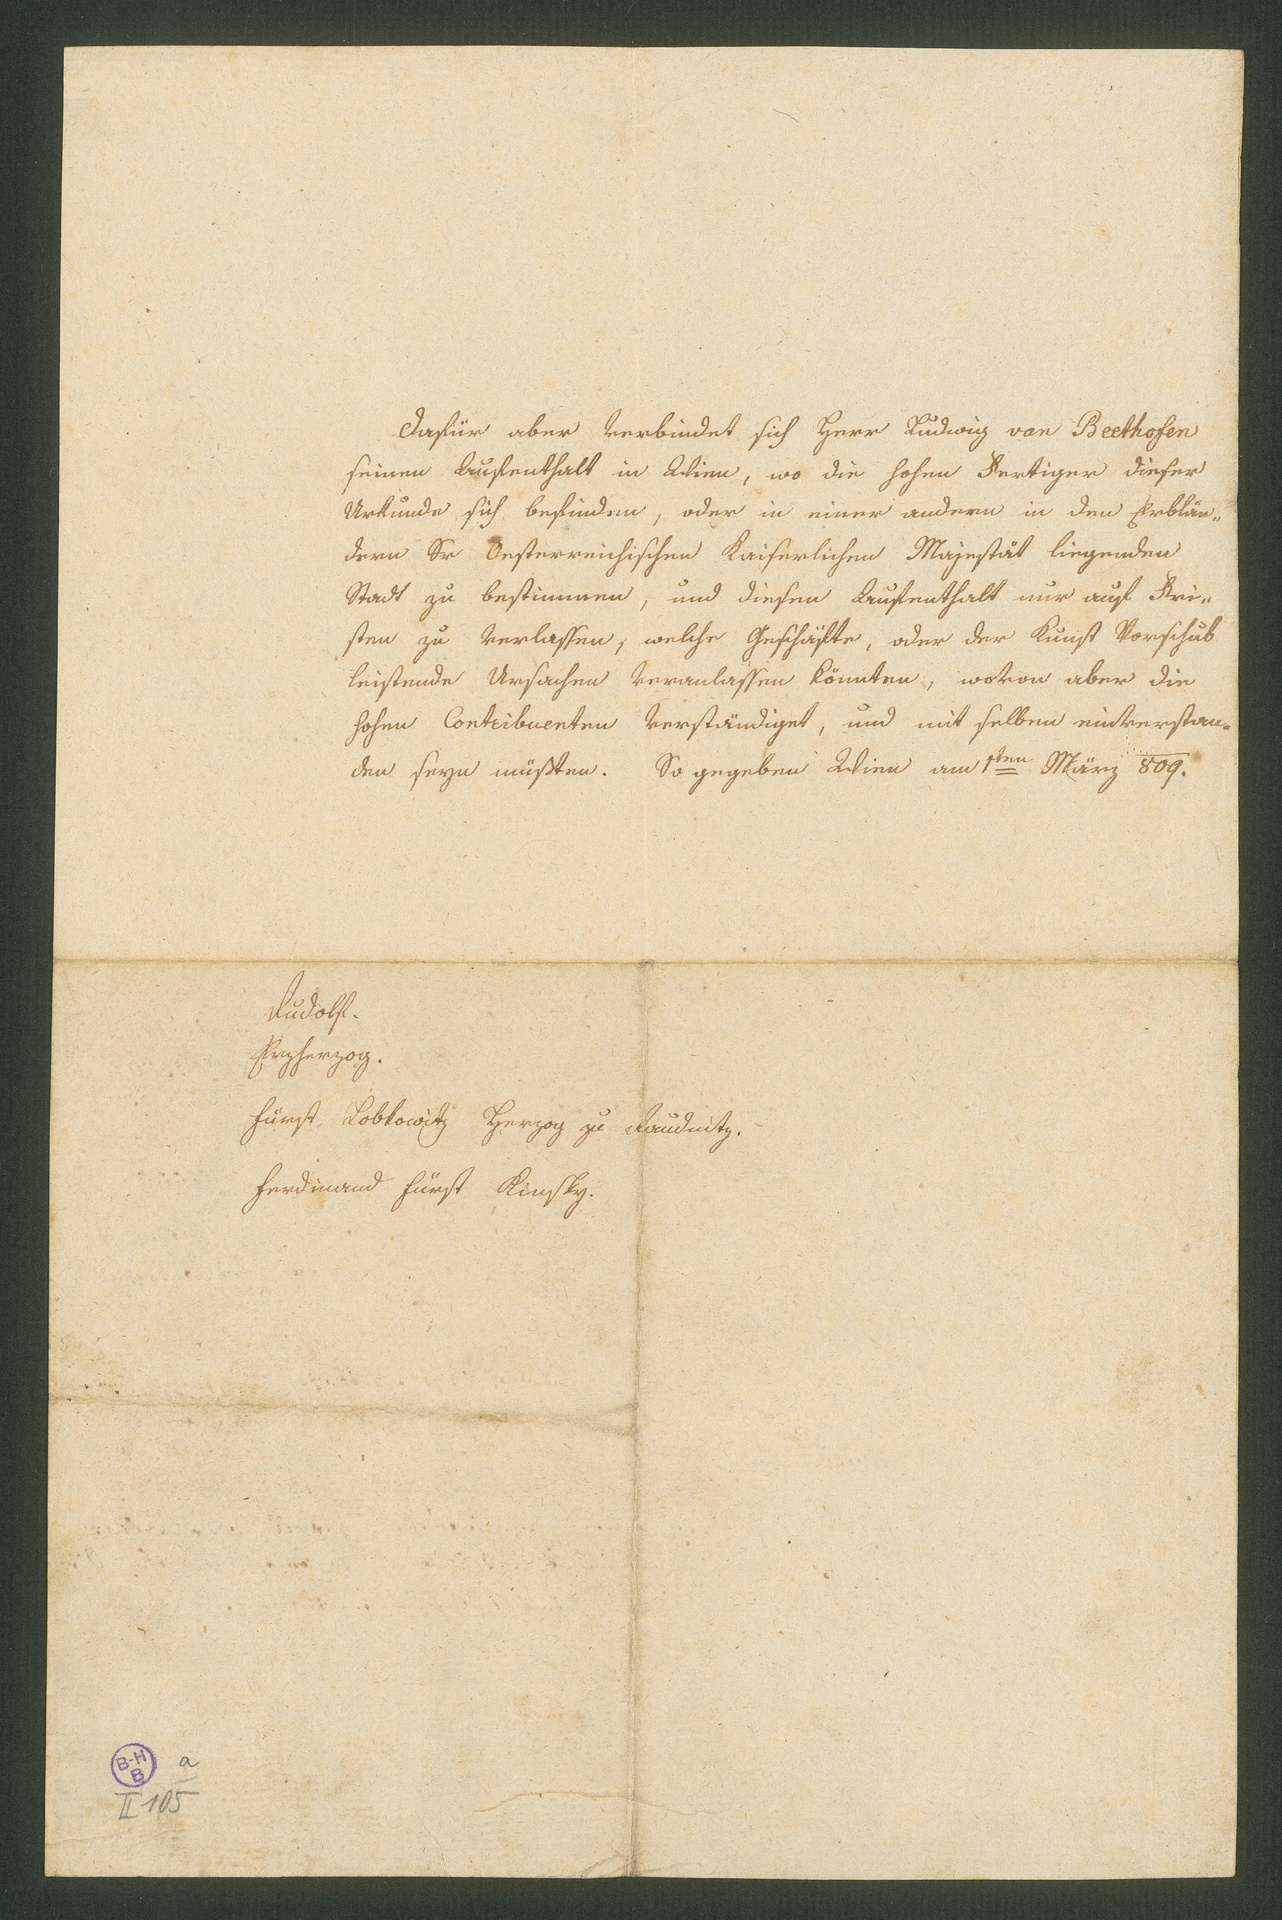 Dafür aber verbindet sich Herr Ludwig van Beethofen
seinen Aufenthalt in Wien, wo die hohen Fertiger dieser
Urkunde sich befinden, oder in einer andern in den Erblän„
dern Sr Oesterreichischen Kaiserlichen Majestät liegenden
Stadt zu bestimmen, und diesen Aufenthalt nur auf Fri„
sten zu verlassen, welche Geschäfte, oder der Kunst Vorschub
leistende Ursachen veranlassen könnten, wovon aber die
hohen Contribuenten verständiget, und mit selben einverstan„
den seyn müßten. So gegeben Wien am 1ten März 809.
Rudolf.
Erzherzog.
Fürst Lobkowitz Herzog zu Raudnitz.
Ferdinand Fürst Kinsky.
B-H
B
a
II 105